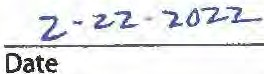 2-22-2022
Date